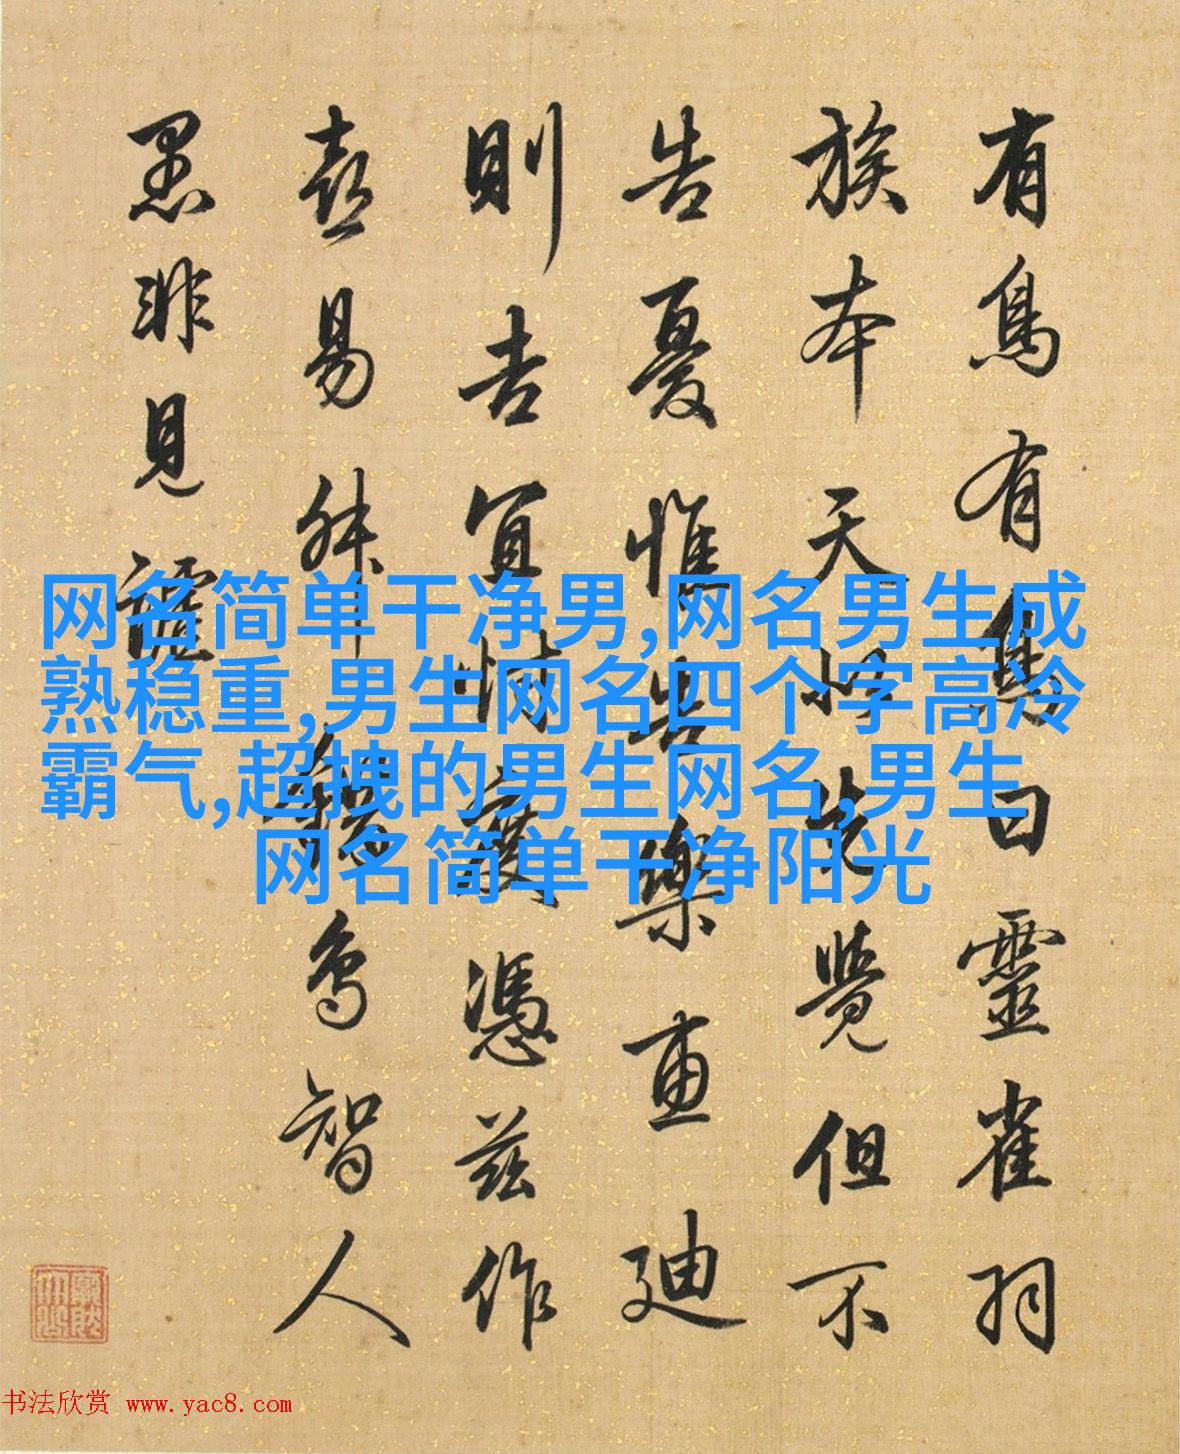 有鳥有鳥曰靈雀羽
族本天以先覺但不
告憂惟告樂惠迪
則吉宜憑茲作
喜易鳥智人
愚非見
网名简单干净男,网名男生成
熟稳重,男生网名四个字高冷
霸气,超拽的男生网名,男生
网名简单干净阳光
书法欣赏 www.yac8.com